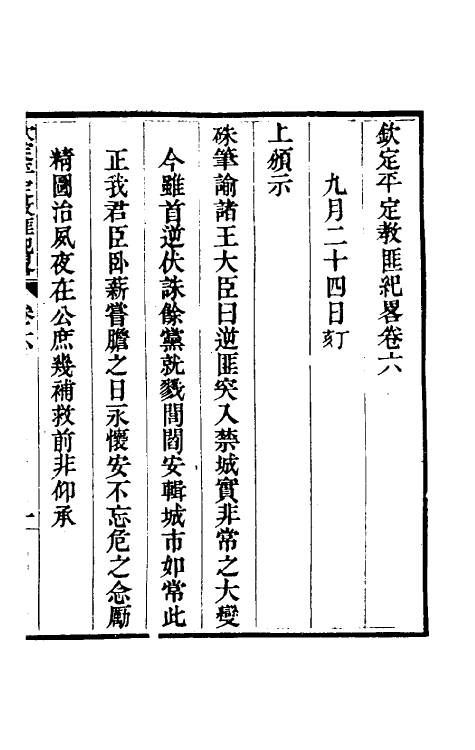 欽定平定教匪紀畧卷六
九月二十四日刻
上頒示
硃筆諭諸王大臣曰逆匪突入禁城實非常之大變
今雖首逆伏誅餘黨就戮閭閻安輯城市如常此
正我君臣卧薪嘗膽之日永懷安不忘危之念勵
精圖治夙夜在公庶幾補救前非仰承
欽定平定教匪紀畧 卷六 一